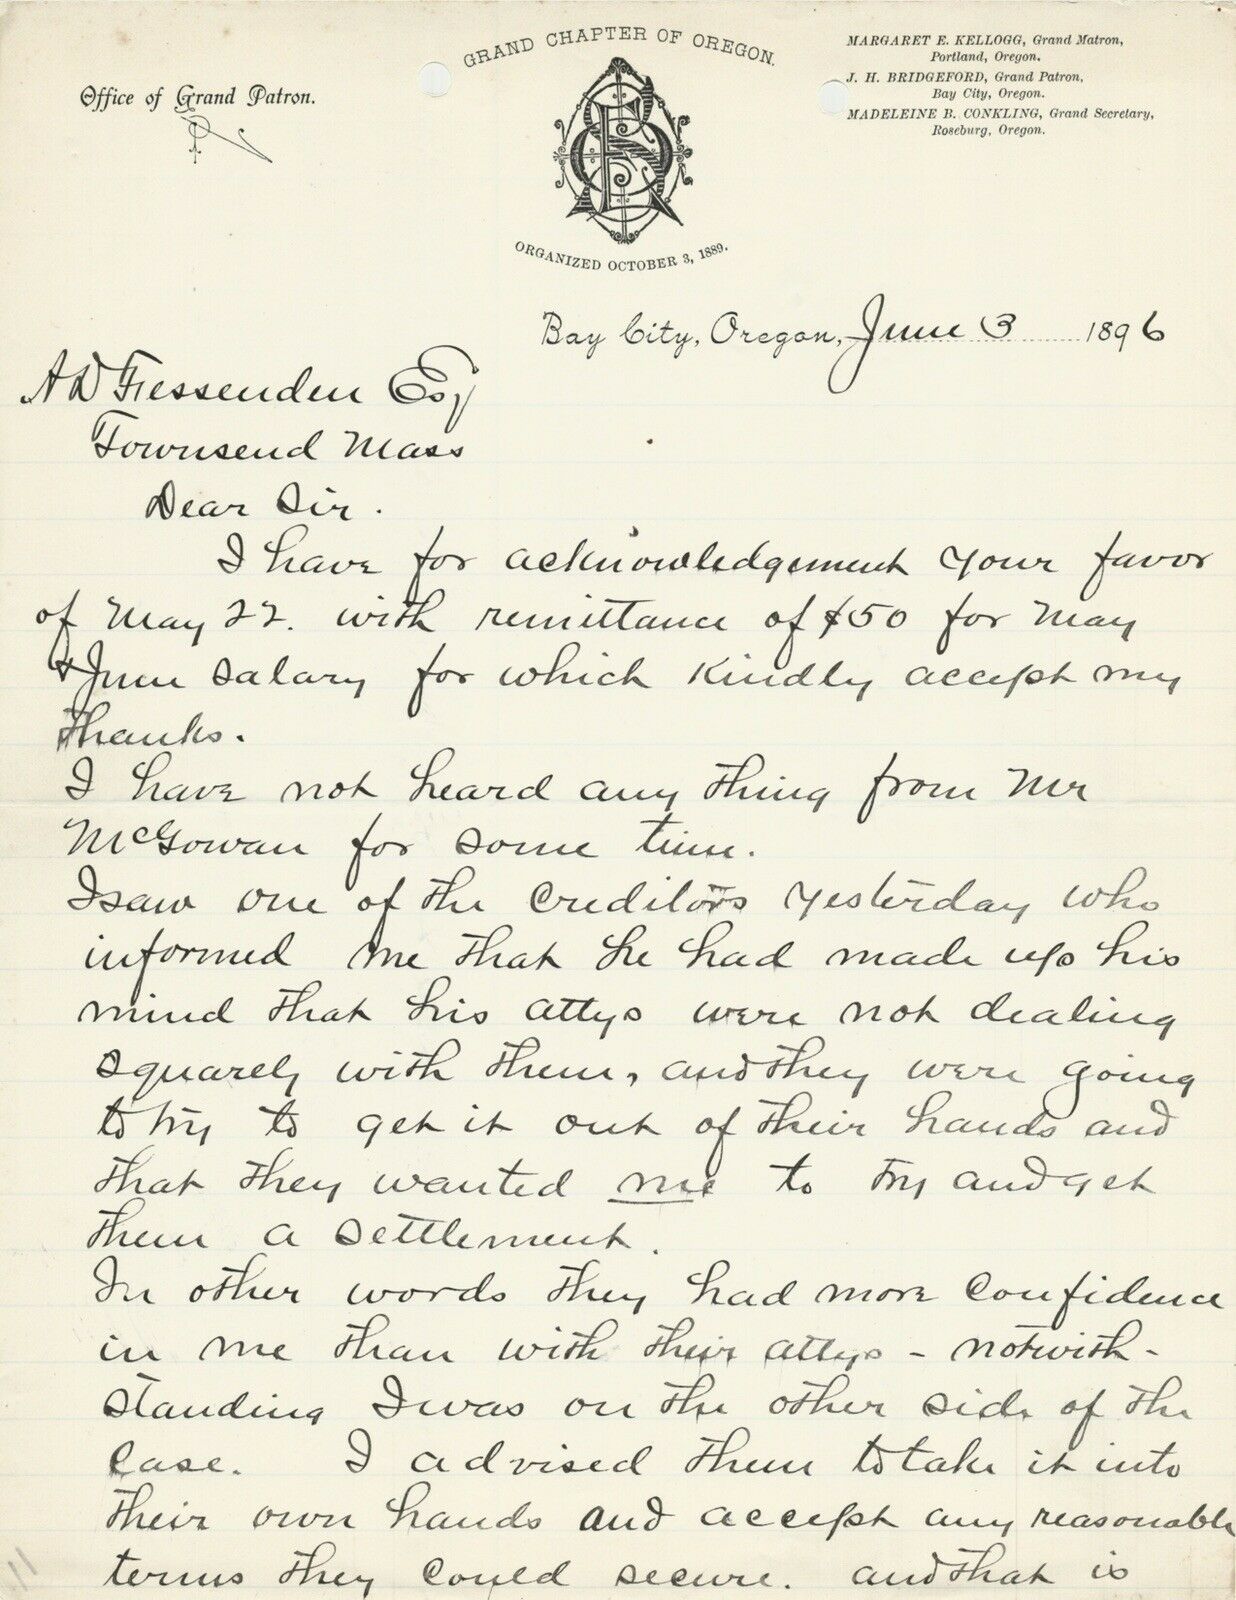 GRAND CHAPTER OF OREGON.
Office of Grand Patron.
MARGARET E. KELLOGG, Grand Matron,
Portland, Oregon.
J. H. BRIDGEFORD, Grand Patron,
Bay City, Oregon.
MADELEINE B. CONKLING, Grand Secretary,
Roseburg, Oregon.
ORGANIZED OCTOBER 3, 1889.
Bay City, Oregon, June 3 1896
A D Fessenden Esq
Townsend Mass
Dear Sir.
I have for acknowledgement your favor
of May 22. with remittance of $50 for May
& June salary for which kindly accept my
thanks.
I have not heard any thing from Mr
McGowan for some time.
I saw one of the creditors yesterday who
informed me that he had made up his
mind that his attys were not dealing
squarely with them, and they were going
to try to get it out of their hands and
that they wanted me to try and get
them a settlement.
In other words they had more confidence
in me than with their attys - notwith-
standing I was on the other side of the
case. I advised them to take it into
their own hands and accept any reasonable
terms they could secure. and that is
11